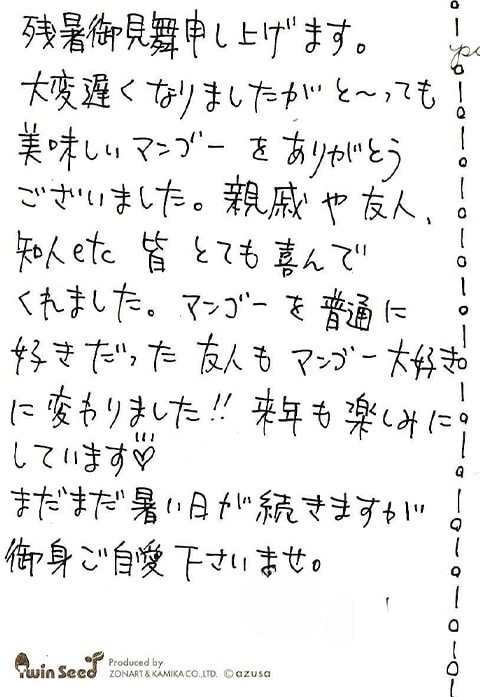 残暑御見舞申し上げます。
大変遅くなりましたがと〜っても
美味しいマンゴーをありがとう
ございました。親戚や友人、
知人etc 皆とても喜んで
くれました。マンゴーを普通に
好きだった友人もマンゴー大好き
に変わりました!! 来年も楽しみに
しています♡
まだまだ暑い日が続きますが
御身ご自愛下さいませ。
Twin Seed Produced by
ZONART & KAMIKA CO., LTD. © azusa